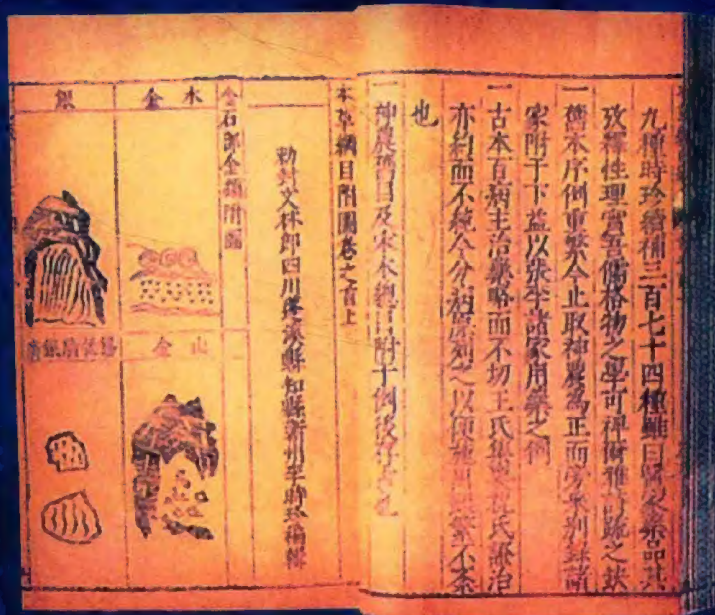 九種時珍續補三百七十四種雖曰醫家藥品其
攷釋性理實吾儒格物之學可裨爾雅詩疏之缺
一舊本序例重繁今止取神農為正而旁采別錄諸
家附于下益以張李諸家用藥之例
一古本百病主治藥略而不切王氏集要祝氏證治
亦約而不純今分病原列之以便施用雖繁不紊
也
一神農舊目及宋本總目附于例後存古也
本草綱目附圖卷之首上
勅封文林郎四川蓬溪縣知縣蘄州李時珍編輯
金石部金類附圖
水金
山金
銀